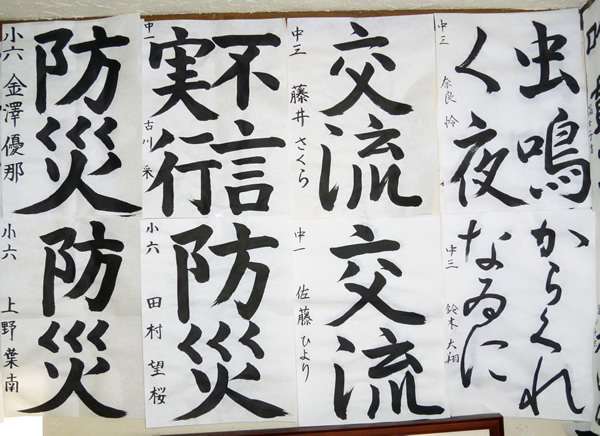 虫鳴
く夜
中三 奈良 怜
交流
中三 藤井さくら
不言
実行
中一 古川 采
防災
小六 金澤優那
からくれ
なゐに
中三 鈴木大翔
交流
中一 佐藤ひより
防災
小六 田村望桜
防災
小六 上野葉南